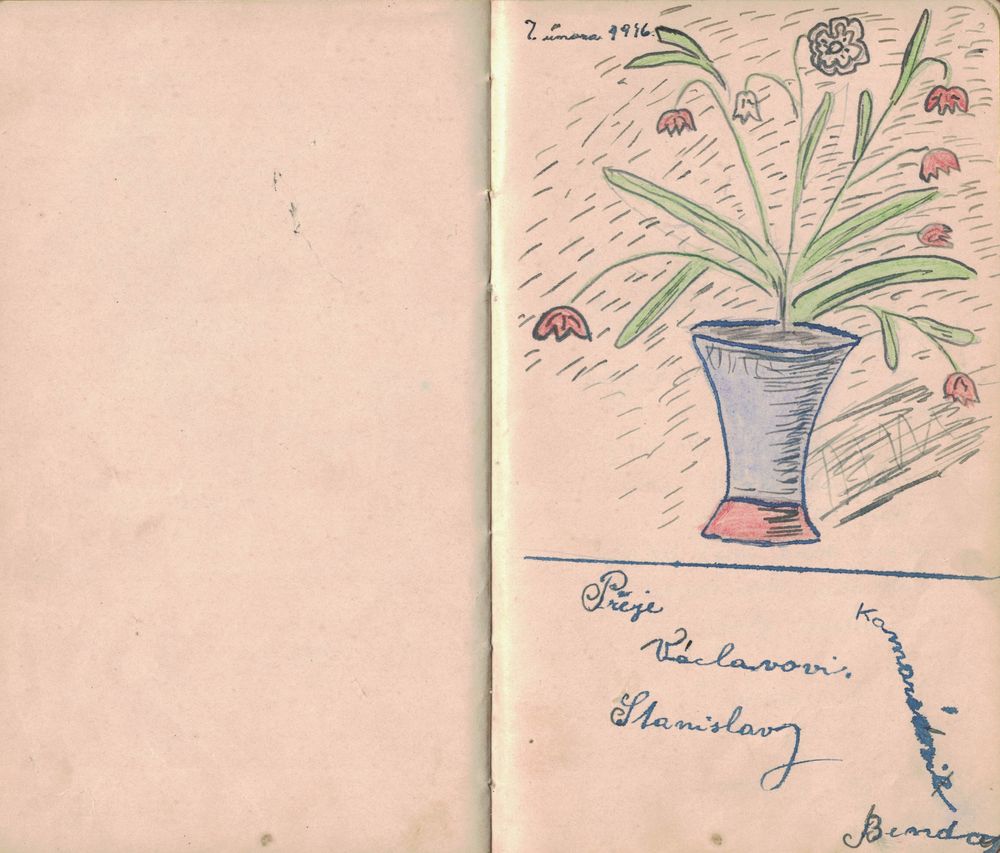 7. února 1946.
Přeje
Václavovi.
Stanislav
Kamarádník
Benda